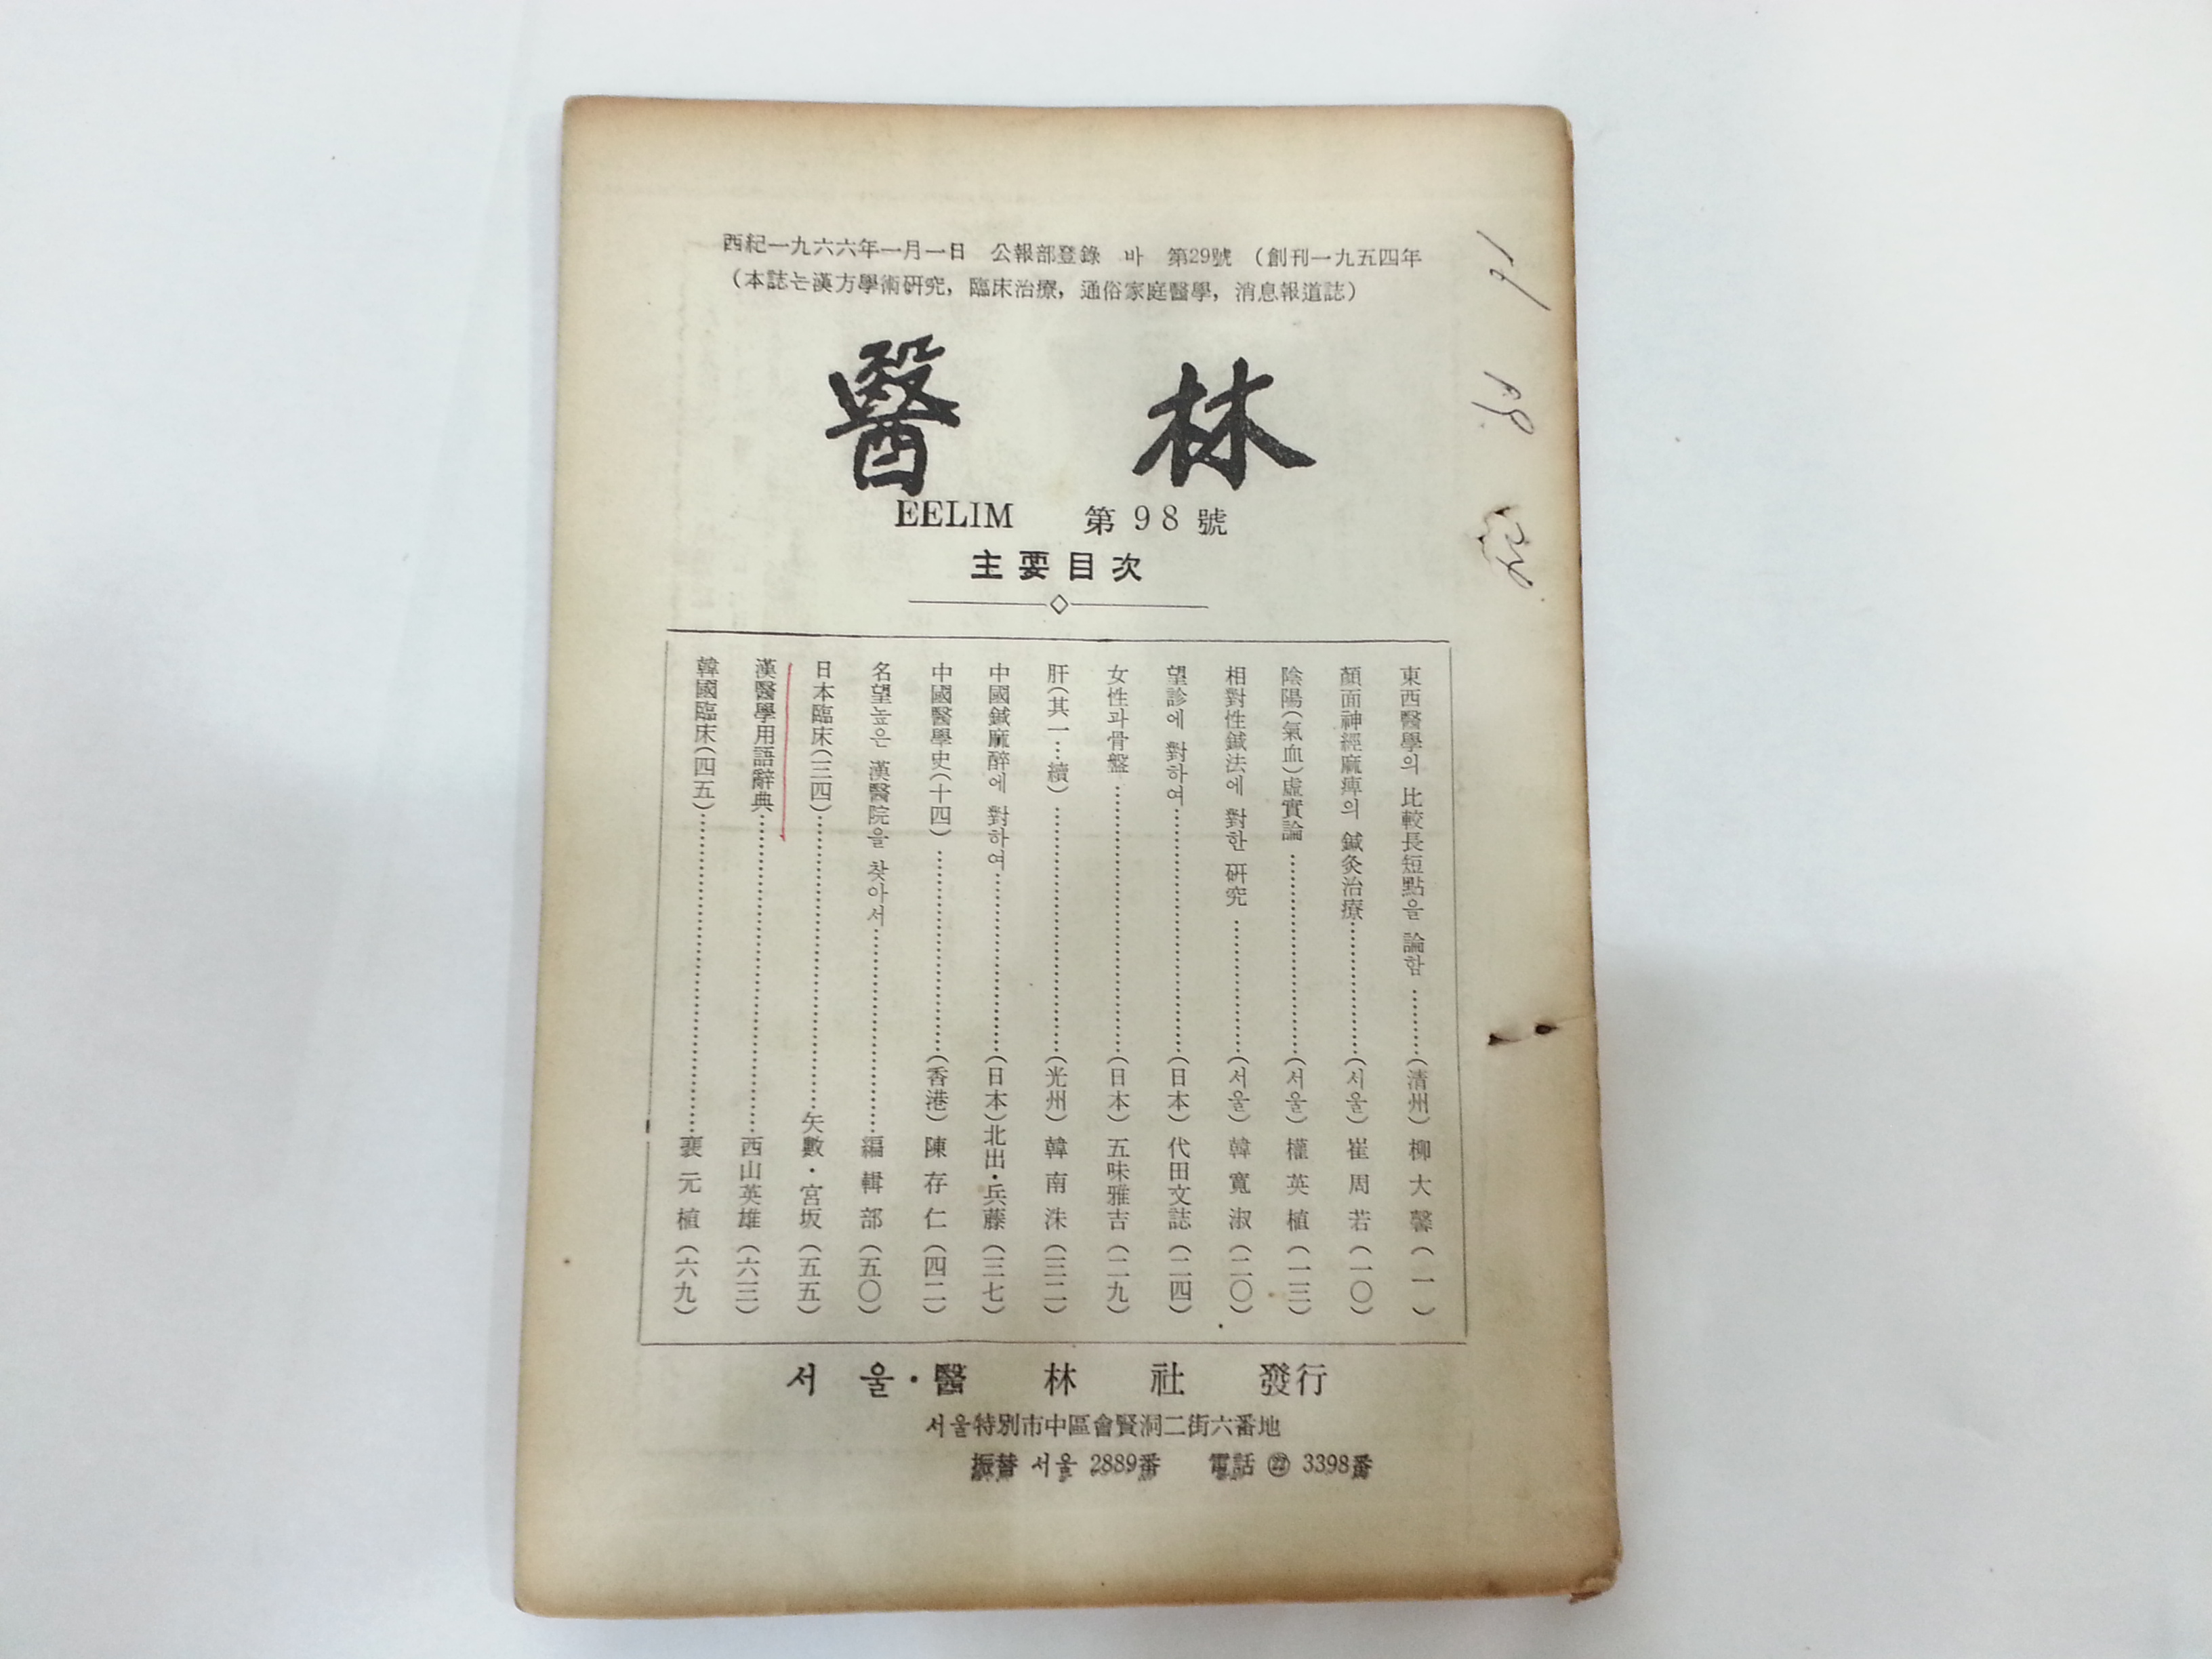 西紀一九六六年一月一日 公報部登錄 바 第29號 (創刊一九五四年
(本誌는漢方學術硏究, 臨床治療, 通俗家庭醫學, 消息報道誌)
醫林
EELIM 第98號
主要目次
東西醫學의 比較長短點을 論함 ………(清州) 柳大馨(一)
顏面神經麻痺의 鍼灸治療………(서울) 崔周若(一〇)
陰陽(氣血)虛實論………(서울) 權英植(一三)
相對性鍼法에 對한 硏究………(서울) 韓寬淑(二〇)
望診에 對하여………(日本) 代田文誌(二四)
女性과骨盤………(日本) 五味雅吉(二九)
肝(其一…續)………(光州) 韓南洙(三二)
中國鍼麻醉에 對하여………(日本)北出・兵藤(三七)
中國醫學史(十四)………(香港) 陳存仁(四二)
名望높은 漢醫院을 찾아서………編輯部(五〇)
日本臨床(三四)………矢數・宮坂(五五)
漢醫學用語辭典………西山英雄(六三)
韓國臨床(四五)………裵元植(六九)
서울・醫林社 發行
서울特別市中區會賢洞二街六番地
振替 서울 2889番 電話 ㉒ 3398番